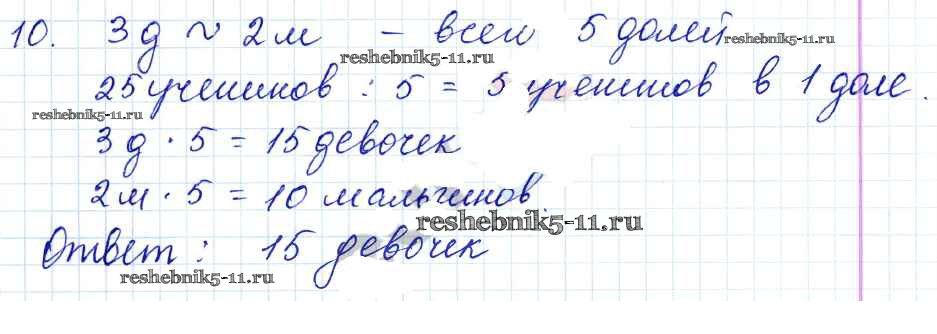 10. 3д ~ 2м – всего 5 долей
reshebnik5-11.ru reshebnik5-11.ru
25 учеников : 5 = 5 учеников в 1 доле.
reshebnik5-11.ru
3д · 5 = 15 девочек
2м · 5 = 10 мальчиков.
reshebnik5-11.ru
Ответ: 15 девочек
reshebnik5-11.ru